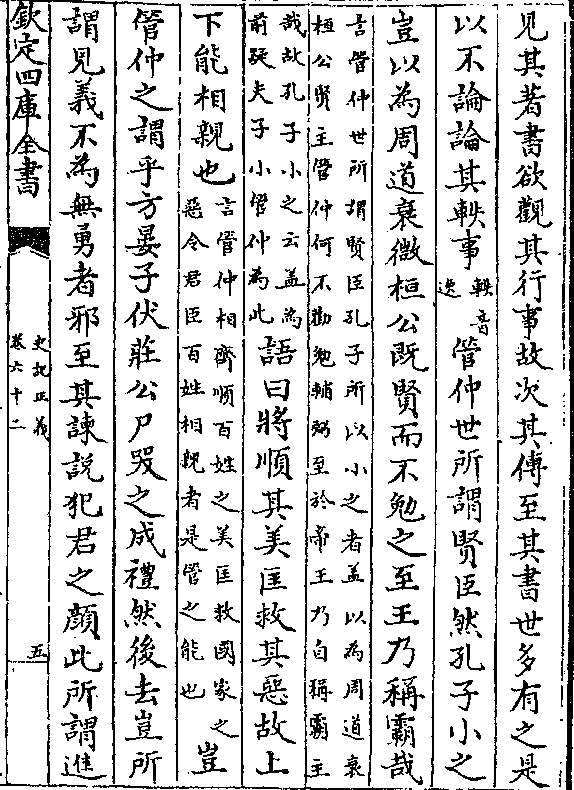 見其著書欲觀其行事故次其傳至其書世多有之是
以不論論其軼事
軼音
逸
管仲世所謂賢臣然孔子小之
豈以為周道衰微桓公既賢而不勉之至王乃稱霸哉
言管仲世所謂賢臣孔子所以小之者盖以為周道衰
桓公賢主管仲何不勸勉輔弼至於帝王乃自稱霸主
哉故孔子小之云盖為
前疑夫子小管仲為此
語曰將順其美匡救其惡故上
下能相親也
言管仲相齊順百姓之美匡救國家之
惡令君臣百姓相親者是管之能也
豈
管仲之謂乎方晏子伏莊公尸哭之成禮然後去豈所
謂見義不為無勇者邪至其諫說犯君之顔此所謂進
欽定四庫全書
史記正義
卷六十二
五